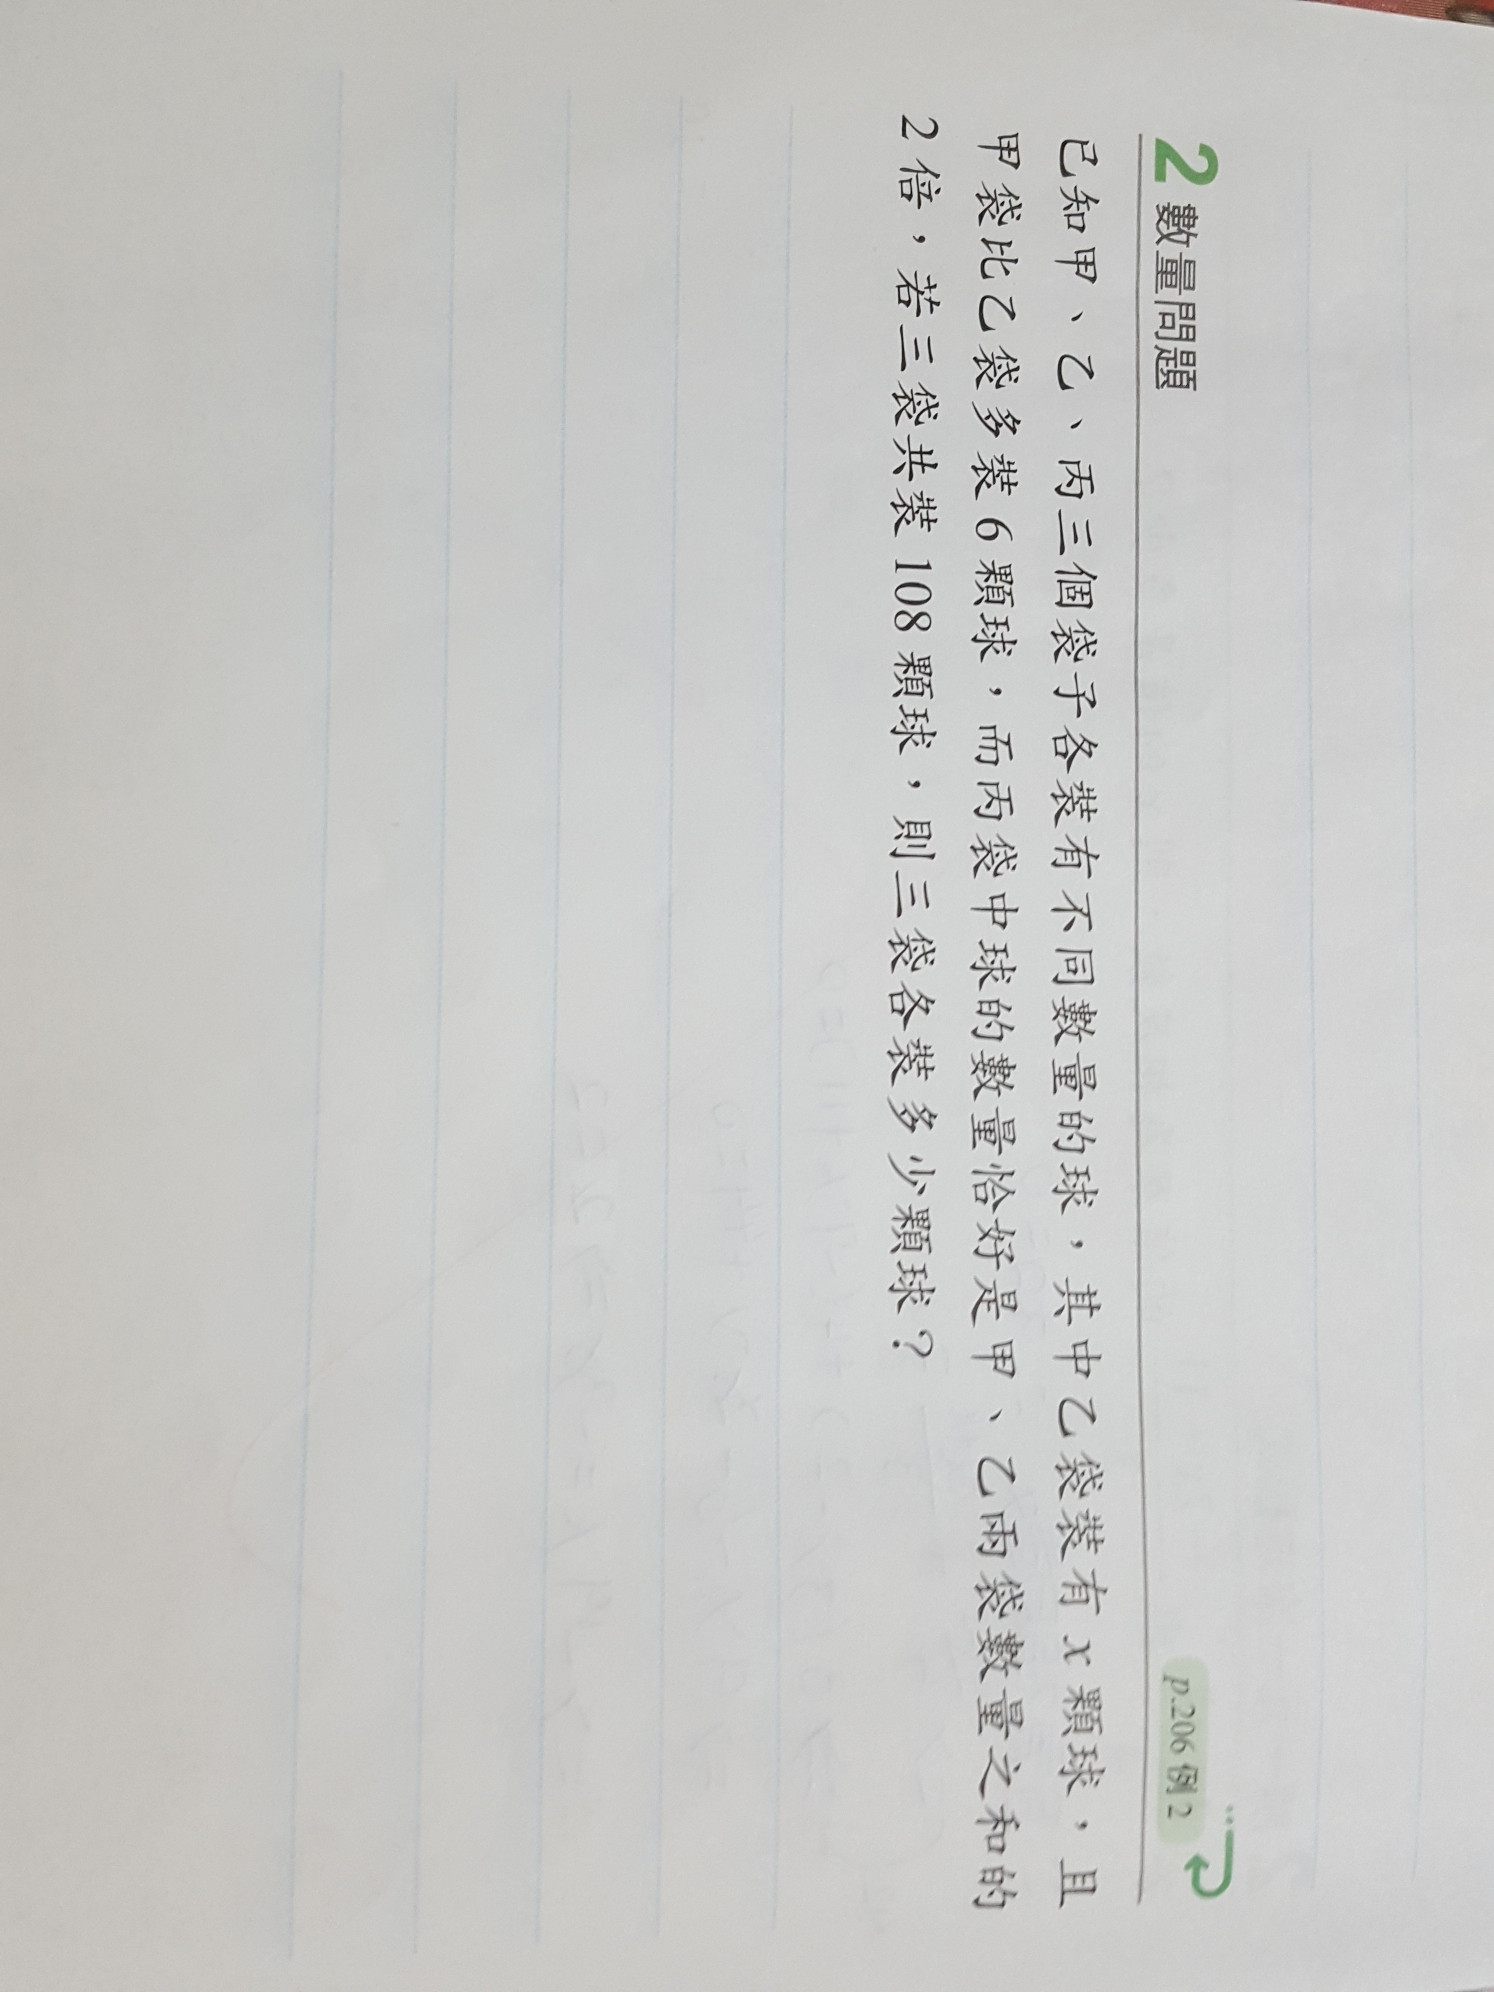 2 數量問題 p.206 例 2
已知甲、乙、丙三個袋子各裝有不同數量的球，其中乙袋裝有 x 顆球，且
甲袋比乙袋多裝 6 顆球，而丙袋中球的數量恰好是甲、乙兩袋數量之和的
2 倍，若三袋共裝 108 顆球，則三袋各裝多少顆球？